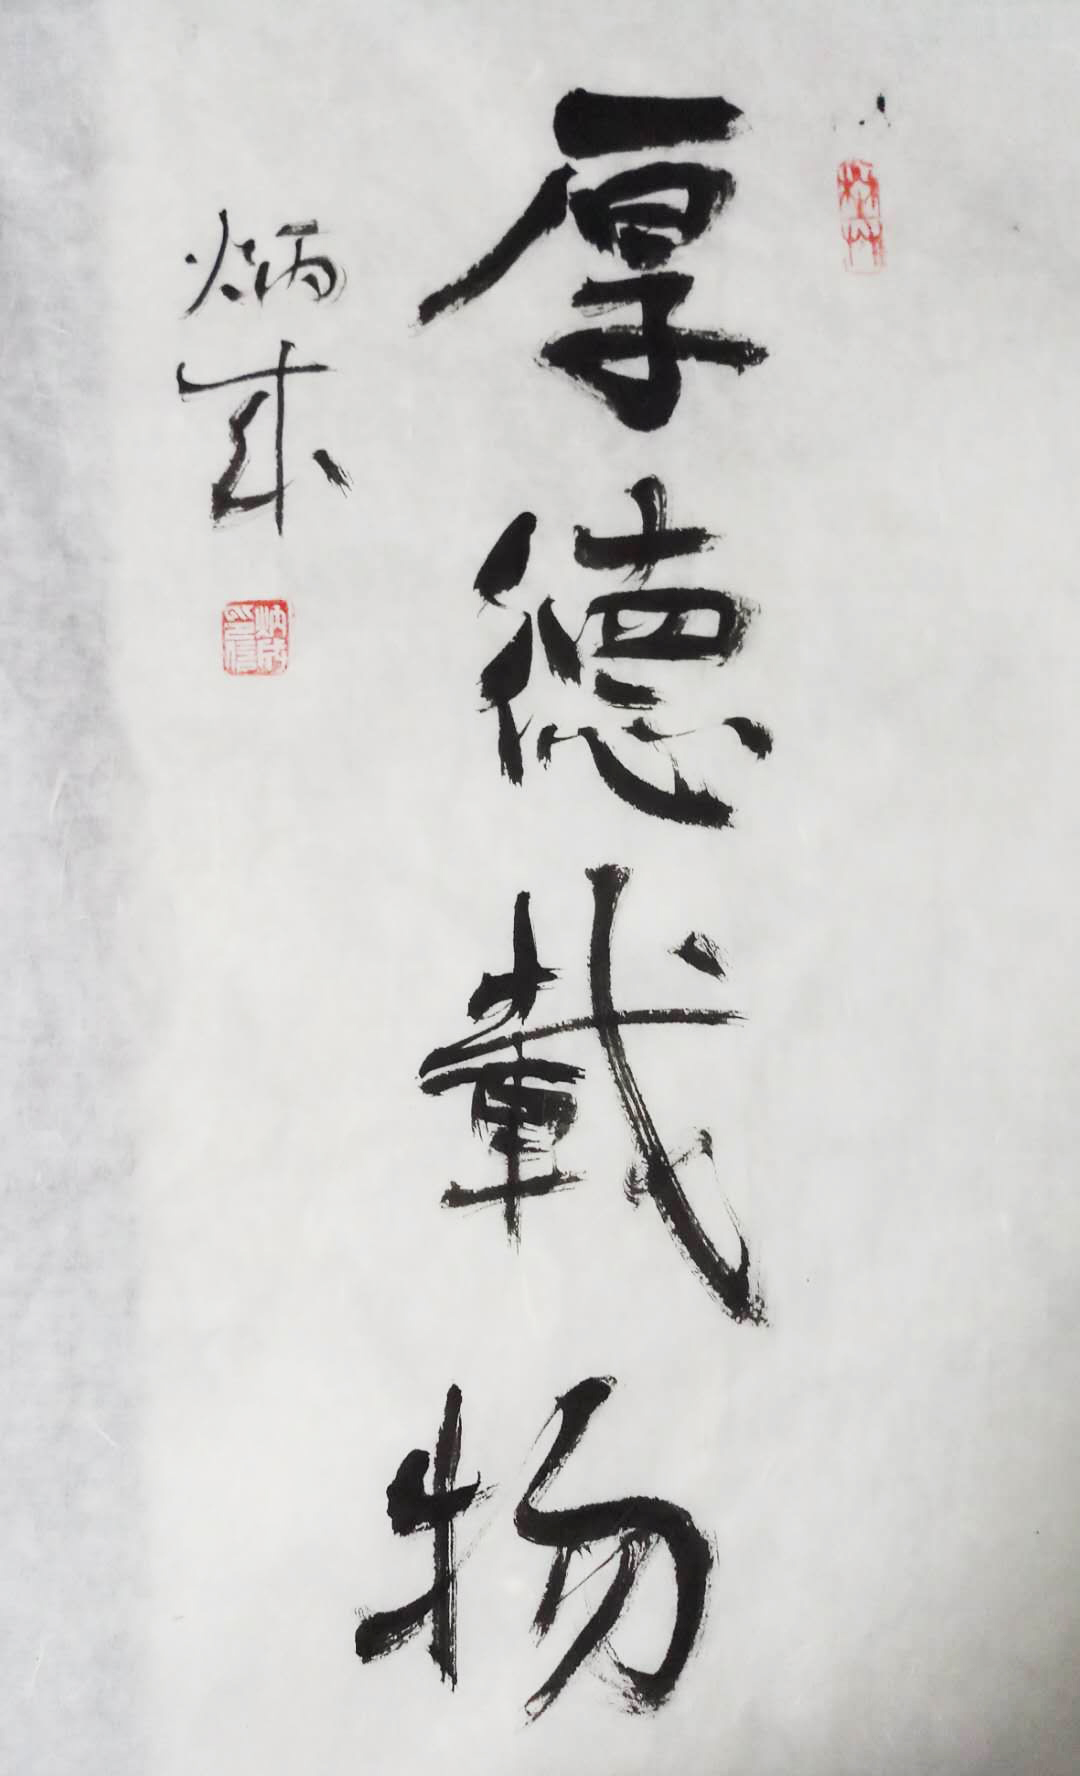 厚德載物
炳成